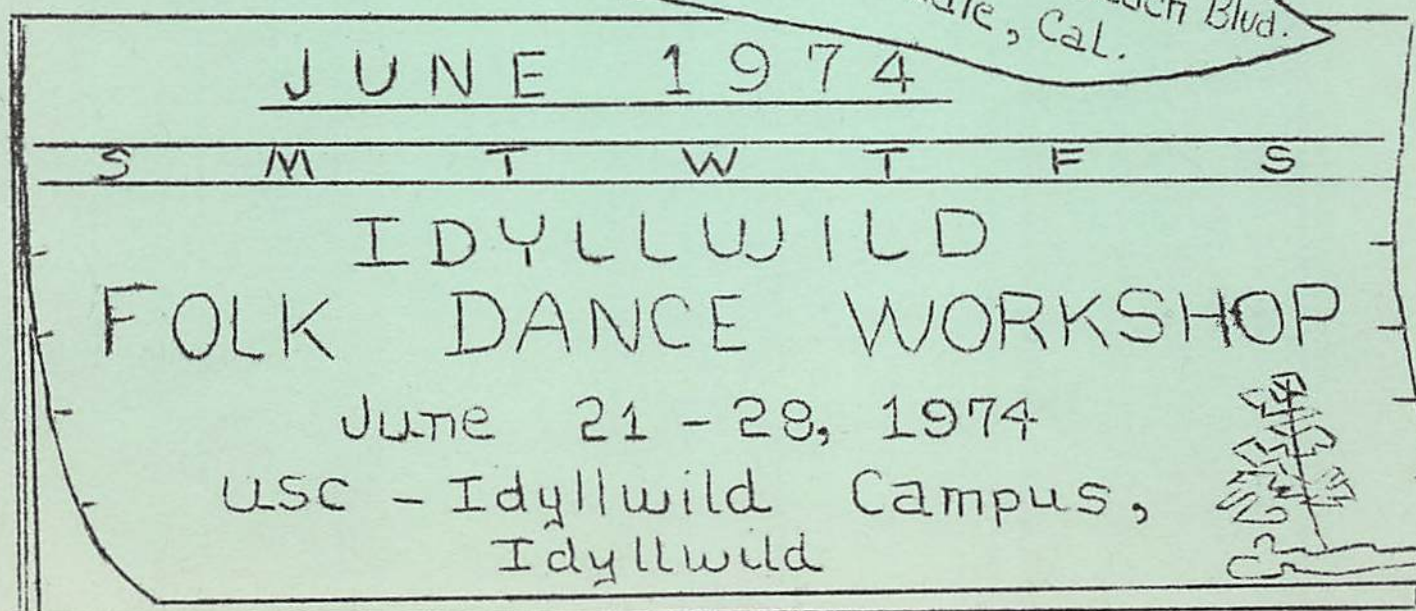 Blvd.
, Cal.
JUNE 1974
S M T W T F S
IDYLLWILD
FOLK DANCE WORKSHOP
June 21-28, 1974
USC - Idyllwild Campus,
Idyllwild